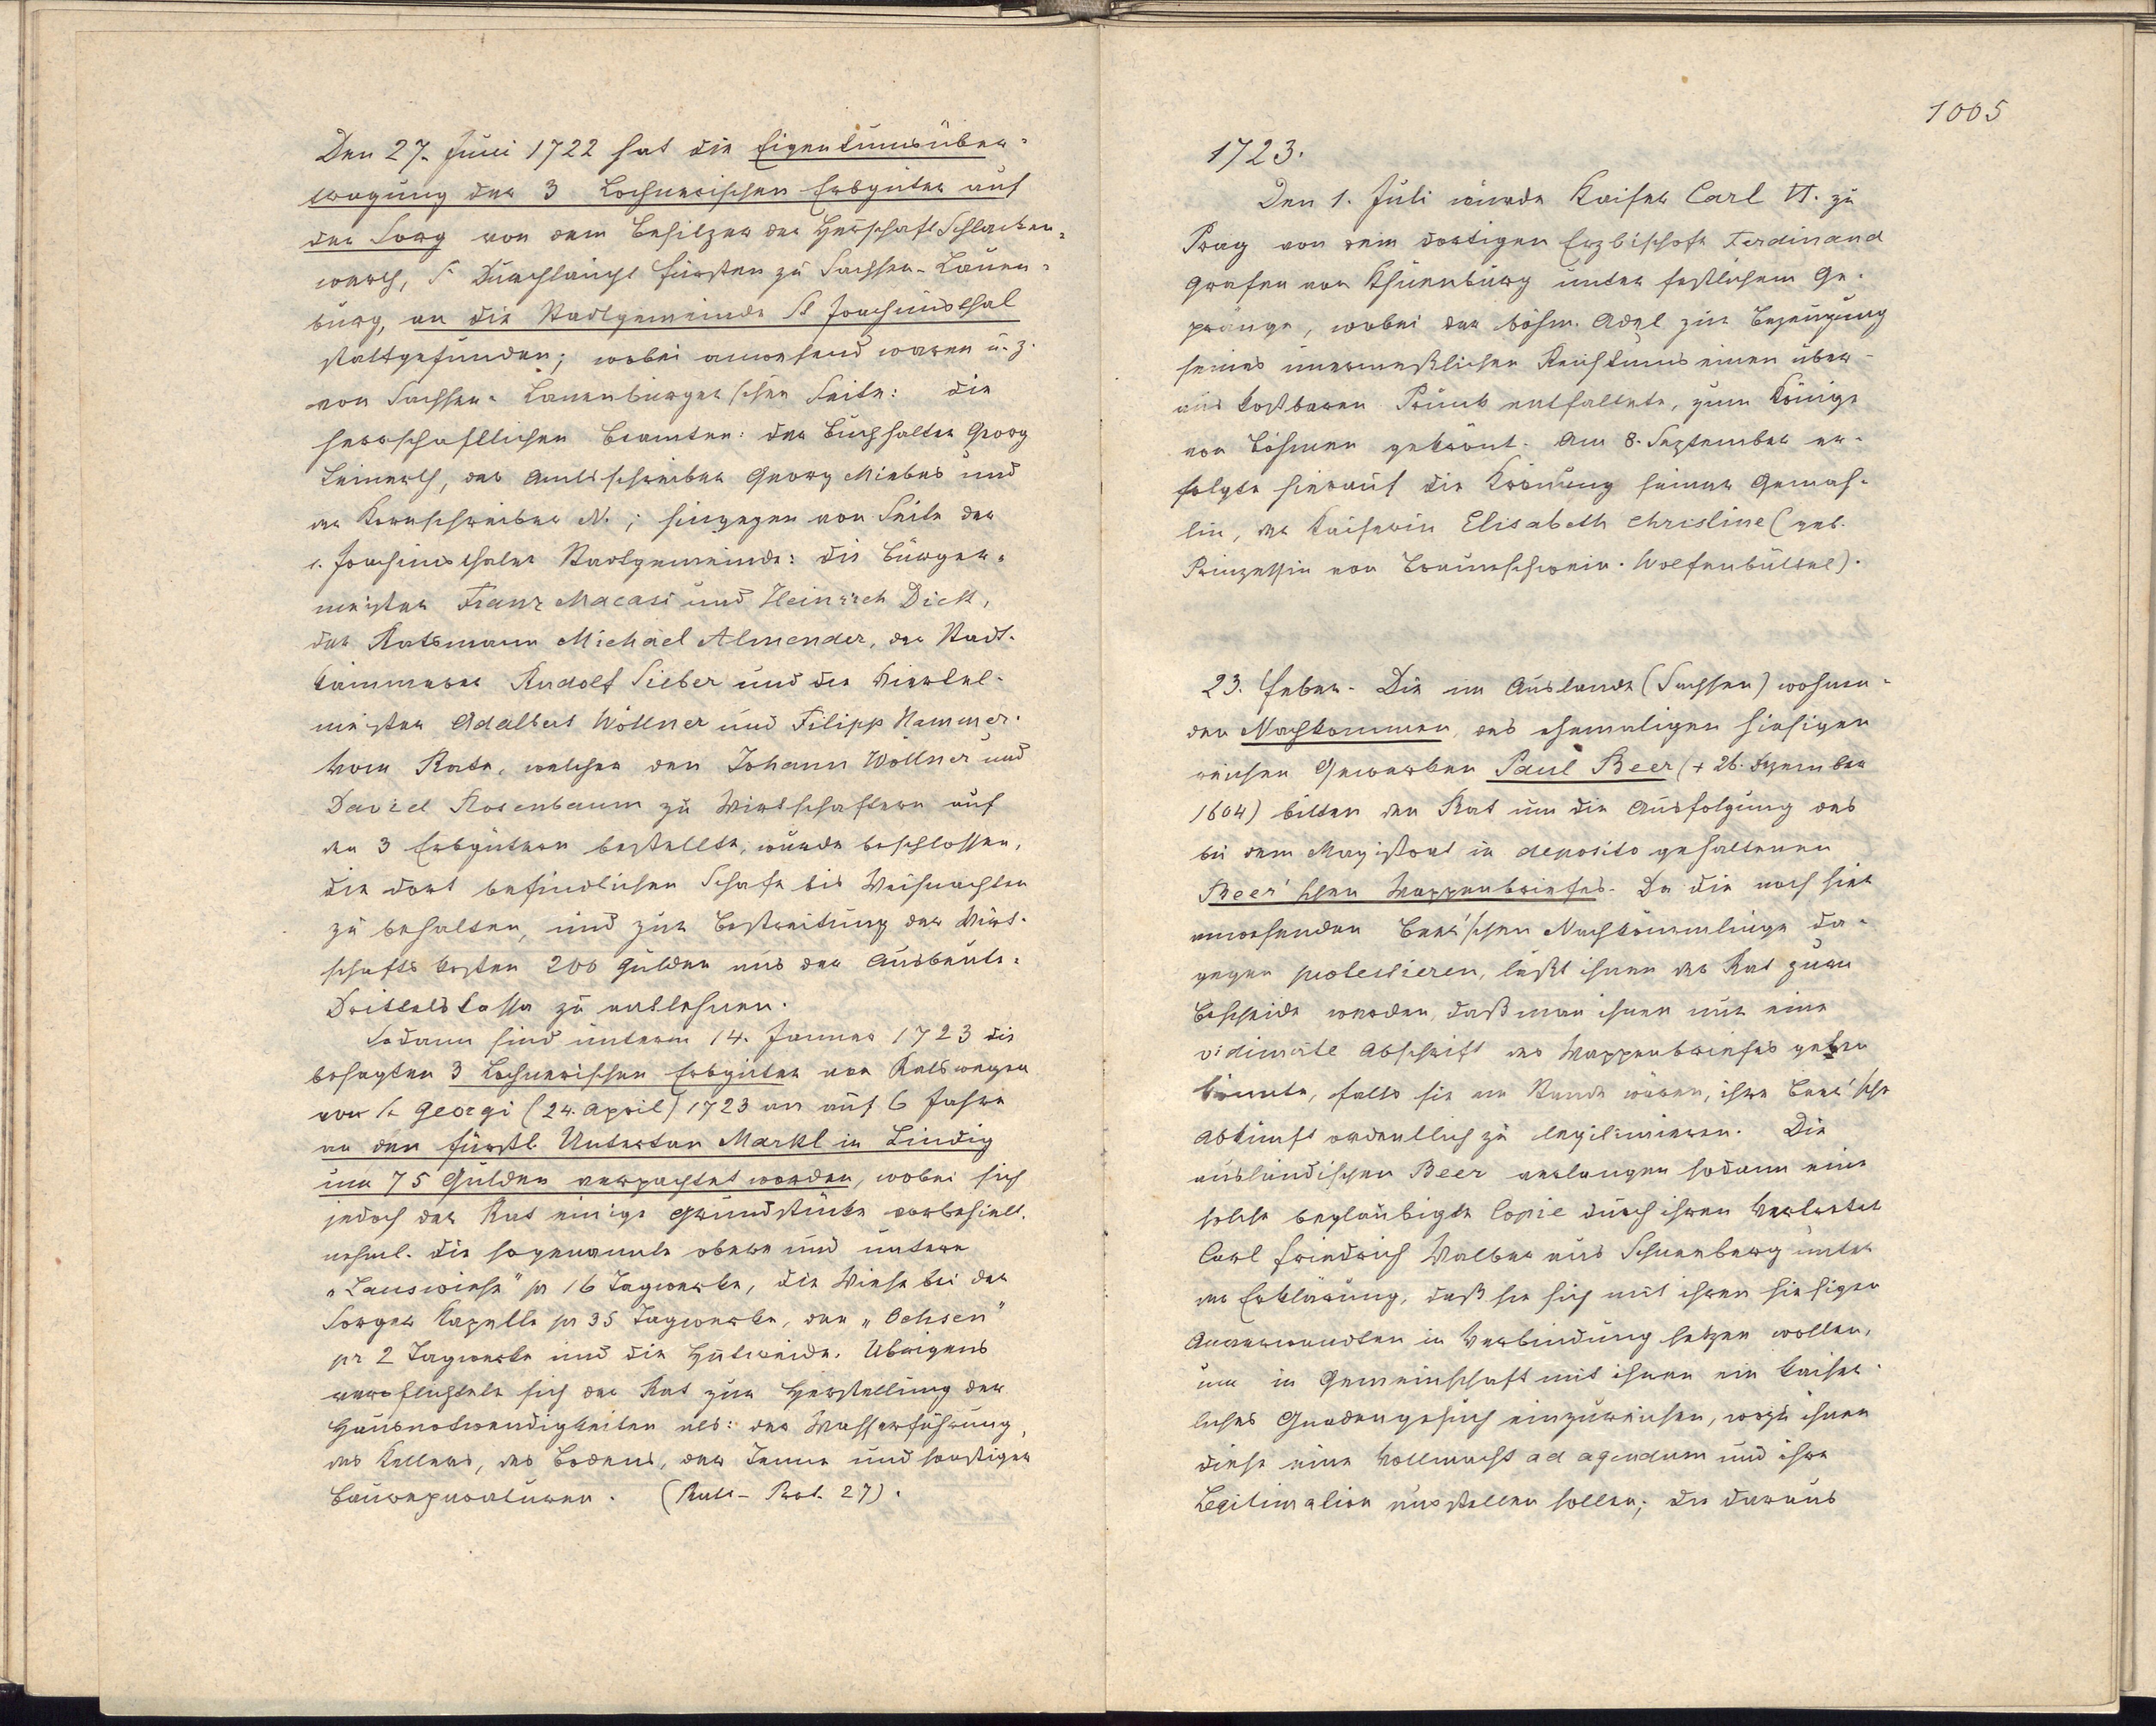 Den 27. Juni 1722 hat die Eigentumsüber-
tragung der 3 Lochnerischen Erbgüter auf
der Sorg von dem Besitzer der Herrschaft Schlacken-
werth, Sr Durchlaucht Fürsten zu Sachsen-Lauen-
burg, an die Stadtgemeinde St Joachimsthal
stattgefunden; wobei anwesend waren u. z.
von Sachsen-Lauenburger'schen Seite: die
herrschaftlichen Beamten: der Buchhalter Georg
Leinerth, der Amtsschreiber Georg Miebes und
der Kornschreiber N.; hingegen von Seite der
s. Joachimsthaler Stadtgemeinde: die Bürger-
meister Franz Macasi und Heinrich Dick,
der Ratsmann Michael Almender, der Stadt-
kämmerer Rudolf Sieber und die Viertel-
meister Adalbert Wöllner und Filipp Hammer.
Vom Rate, welcher den Johann Wöllner und
David Rosenbaum zu Wirtschaftern auf
den 3 Erbgütern bestellte, wurde beschlossen,
die dort befindlichen Schafe bis Weihnachten
zu behalten, und zur Bestreitung der Wirt-
schaftskosten 200 Gulden aus der Ausbeute-
Drittelskassa zu entlehnen.
Sodann sind unterm 14. Jänner 1723 die
besagten 3 Lochnerischen Erbgüter von Ratswegen
von St Georgi (24. April) 1723 an auf 6 Jahre
an den fürstl. Untertan Markl in Lindig
um 75 Gulden verpachtet worden, wobei sich
jedoch der Rat einige Grundstücke vorbehielt.
nehml. die sogenannte obere und untere
„Lauswiese" pr 16 Tagwerke, die Wiese bei der
Sorger Kapelle pr 35 Tagwerke, den „Ochsen"
pr 2 Tagwerke und die Hutweide. Übrigens
verpflichtete sich der Rat zur Herstellung der
Hausnotwendigkeiten als: der Wasserführung,
des Kellers, des Bodens, der Tenne und sonstigen
Baureparaturen. (Rats-Prot. 27).
1005
1723.
Den 1. Juli wurde Kaiser Carl VI. zu
Prag von dem dortigen Erzbischofe Ferdinand
Grafen von Khüenburg unter festlichem Ge-
pränge, wobei der böhm. Adel zur Bezeugung
seines unermeßlichen Reichtums einen über-
aus kostbaren Prunk entfaltete, zum Könige
von Böhmen gekrönt. Am 8. September er-
folgte hierauf die Krönung seiner Gemah-
lin, der Kaiserin Elisabeth Christine (geb.
Prinzessin von Braunschweig-Wolfenbüttel).
23. Feber. Die im Auslande (Sachsen) wohnen-
den Nachkommen des ehemaligen hiesigen
reichen Gewerken Paul Beer (+ 26. Dezember
1604) bitten den Rat um die Ausfolgung des
bei dem Magistrat in deposito gehaltenen
Beer'schen Wappenbriefes. Da die noch hier
anwesenden Beer'schen Nachkömmlinge da-
gegen protestieren, läßt ihnen der Rat zum
Bescheide werden, daß man ihnen nur eine
vidimirte Abschrift des Wappenbriefes geben
könnte, falls sie im Stande wären, ihre Beer'sche
Abkunft ordentlich zu legitimieren. Die
ausländischen Beer verlangen sodann eine
solche beglaubigte Copie durch ihren Vertreter
Carl Friedrich Walber aus Schneeberg unter
der Erklärung, daß sie sich mit ihren hiesigen
Anverwandten in Verbindung setzen wollen,
um in Gemeinschaft mit ihnen ein kaiser-
liches Gnadengesuch einzureichen, wozu ihnen
diese eine Vollmacht ad agendum und ihre
Legitimation ausstellen sollen; die daraus